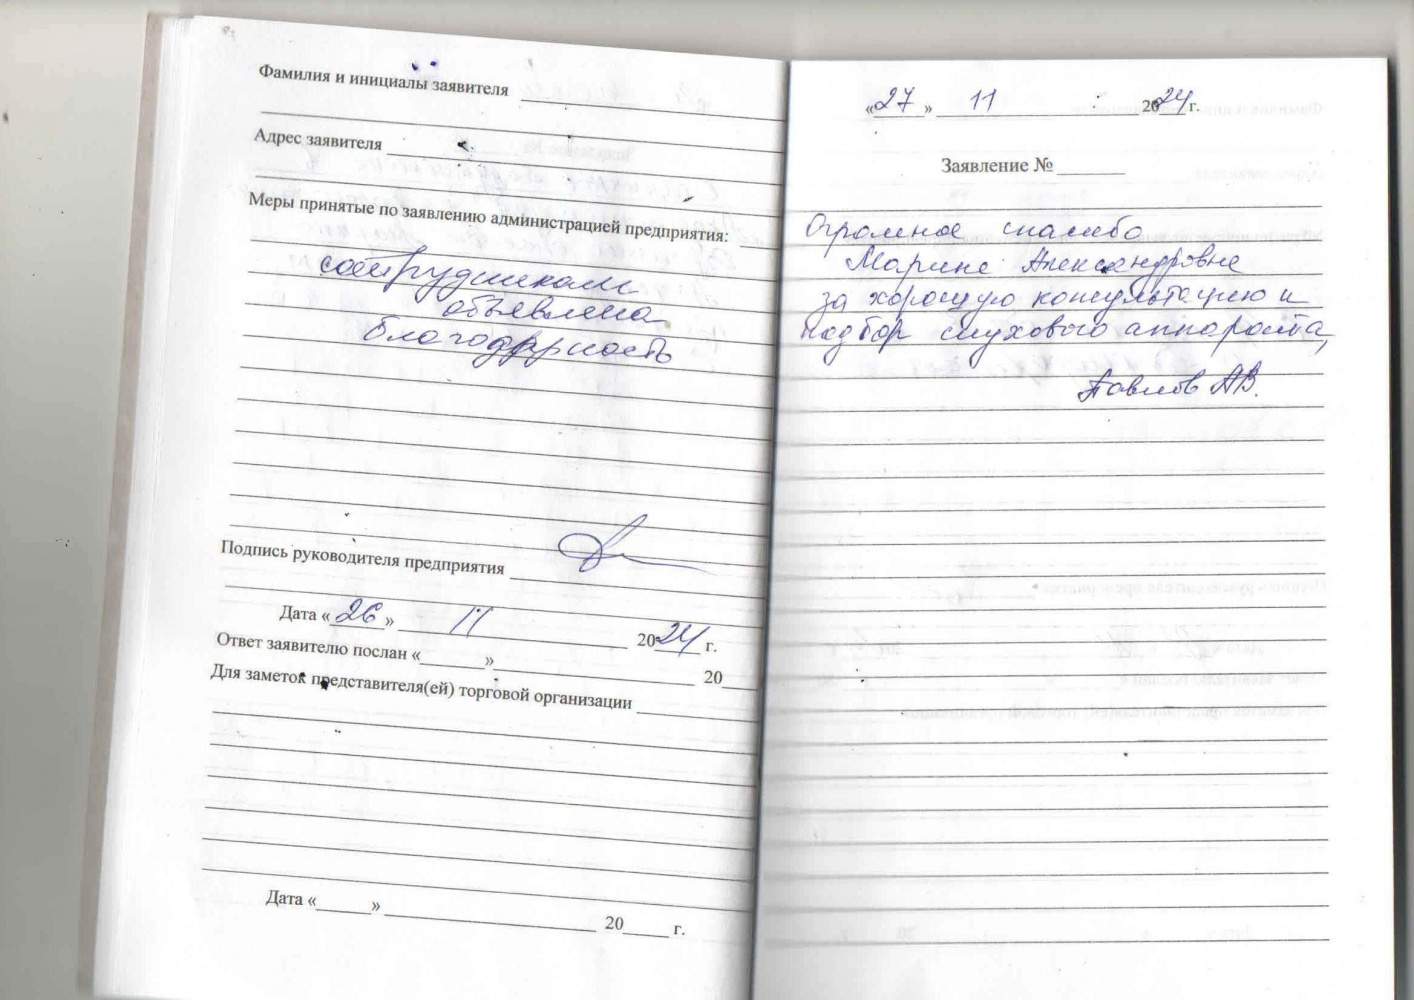 Фамилия и инициалы заявителя
Адрес заявителя
Меры принятые по заявлению администрацией предприятия:
сотрудникам
объявлена
благодарность
Подпись руководителя предприятия
Дата «26» 11 2024 г.
Ответ заявителю послан «______»______ 20___
Для заметок представителя(ей) торговой организации
Дата «______» ______ 20_____ г.
«27» 11 2024г.
Заявление №
Огромное спасибо
Марине Александровне
за хорошую консультацию и
подбор слухового аппарата,
Павлов АВ.